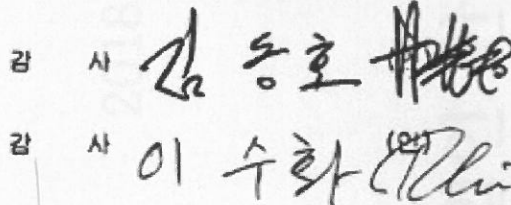 감 사 김 승호
감 사 이 수화 (인)